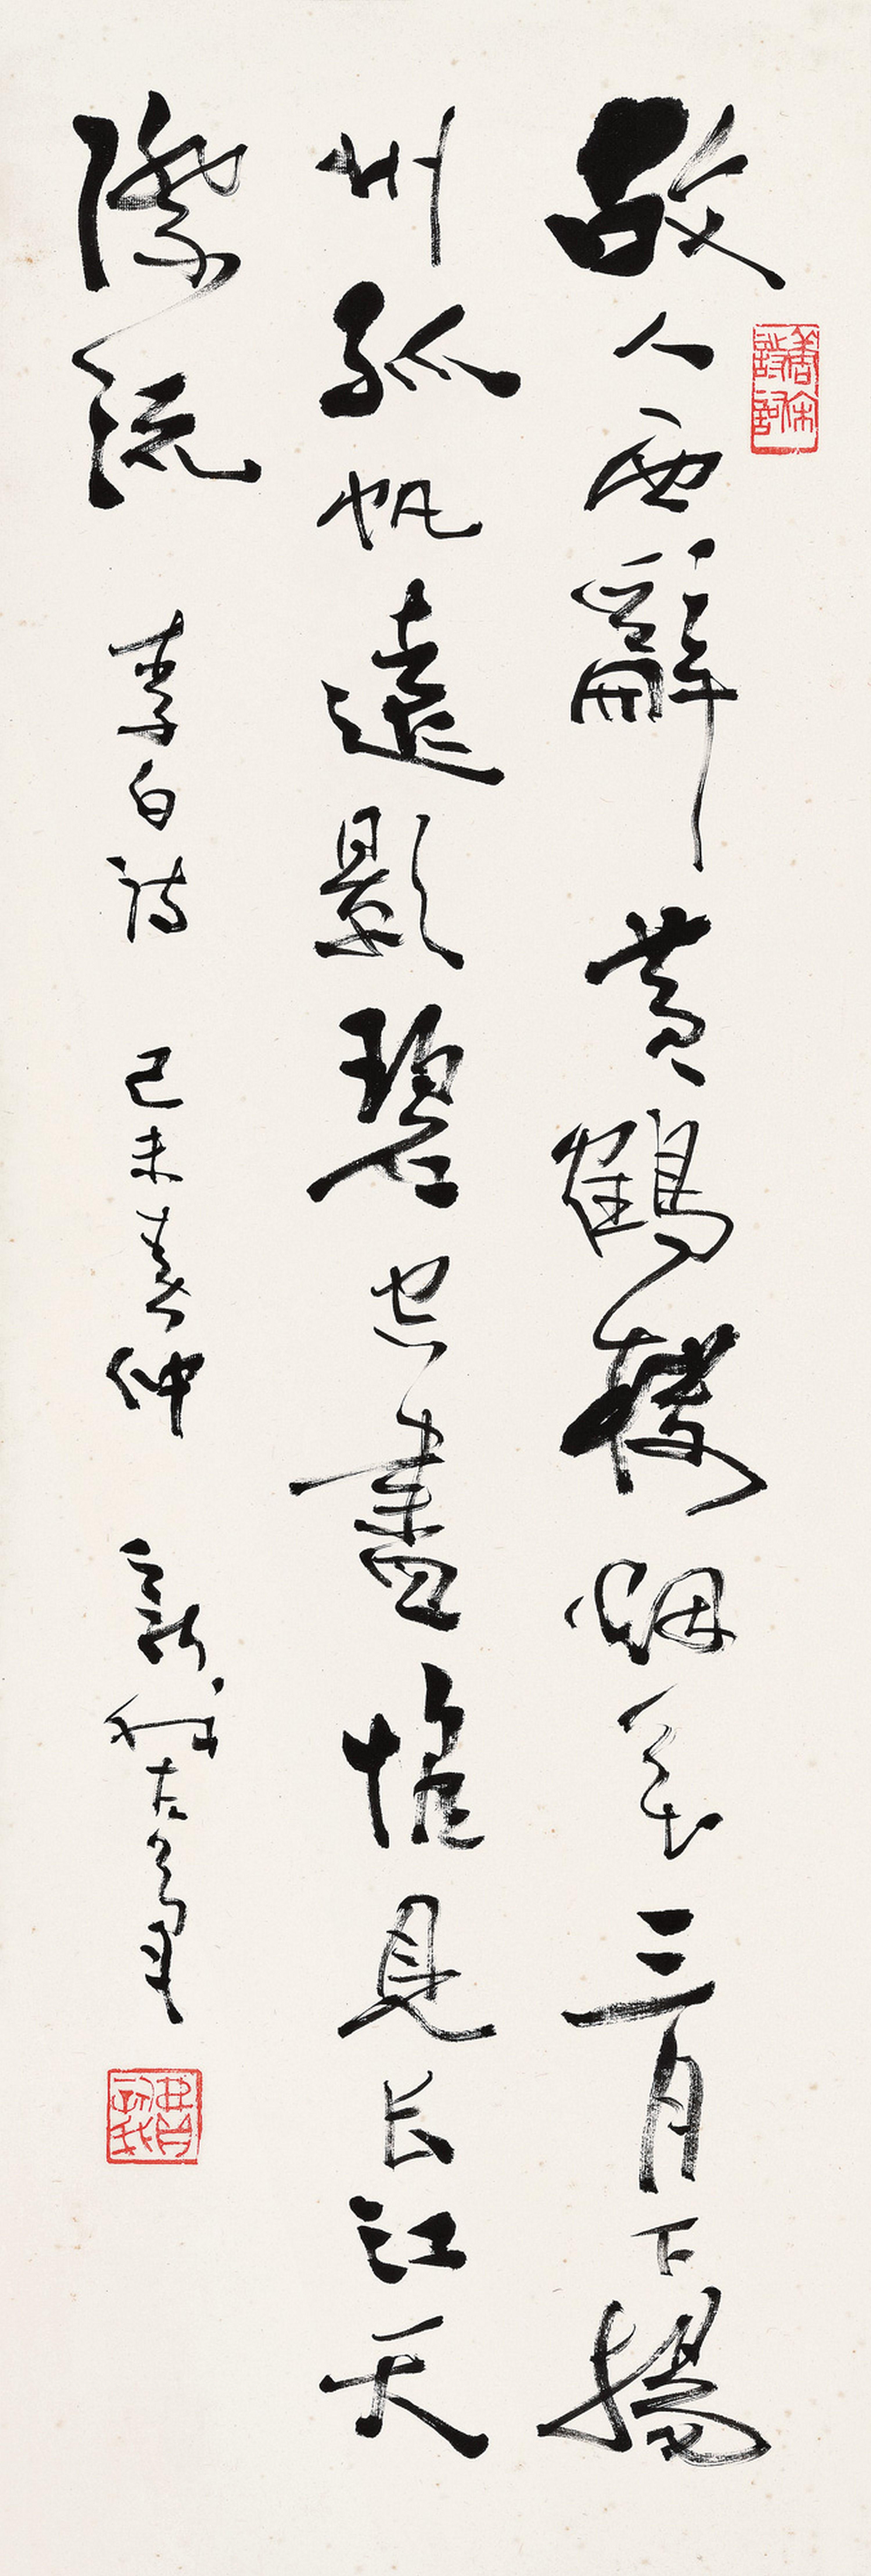 故人西辭黃鶴樓烟花三月下揚
州孤帆遠影碧空盡惟見長江天
際流 李白詩 己未春仲